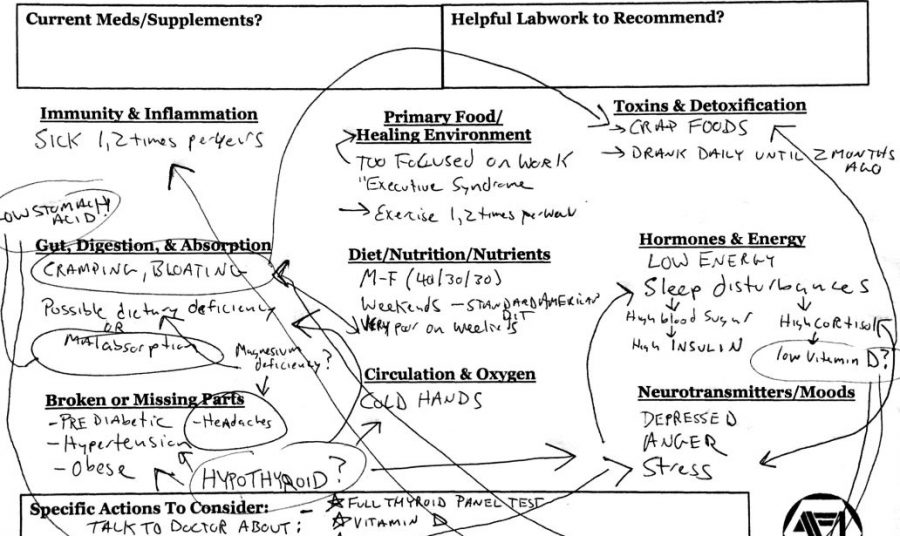 Current Meds/Supplements?
Helpful Labwork to Recommend?
Immunity & Inflammation
SICK 1,2 times per years
Primary Food/
Healing Environment
TOO FOCUSED ON WORK
"Executive Syndrome
→ Exercise 1,2 times per week
Toxins & Detoxification
→ CRAP FOODS
→ DRANK DAILY UNTIL 2 MONTHS
AGO
LOW STOMACH
ACID?
Gut, Digestion, & Absorption
CRAMPING, BLOATING
Possible dietary deficiency
OR
MALabsorption
Magnesium
deficiency?
Diet/Nutrition/Nutrients
M-F (40/30/30)
Weekends - STANDARD AMERICAN
DIT
VERY poor on weekends
Hormones & Energy
LOW ENERGY
Sleep disturbances
High blood Sugar
High INSULIN
High CORTISOL
low Vitamin D?
Broken or Missing Parts
- PRE DIABETIC
- Hypertension
- Obese
- HeADaches
HYPOTHYROID?
Circulation & Oxygen
COLD HANDS
Neurotransmitters/Moods
DEPRESSED
ANGER
Stress
Specific Actions To Consider:
TALK TO DOCTOR ABOUT:
- ☆ FULL THYROID PANEL TEST
☆ VITAMIN D